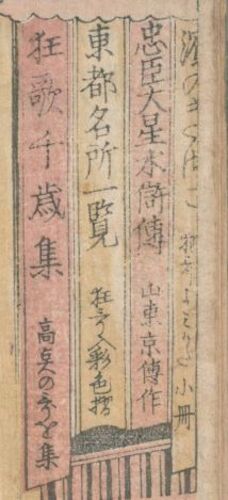 忠臣大星水滸傳 山東京傳作
東都名所一覧 狂哥入彩色摺
狂歌千歳集 高点の哥を集
小冊